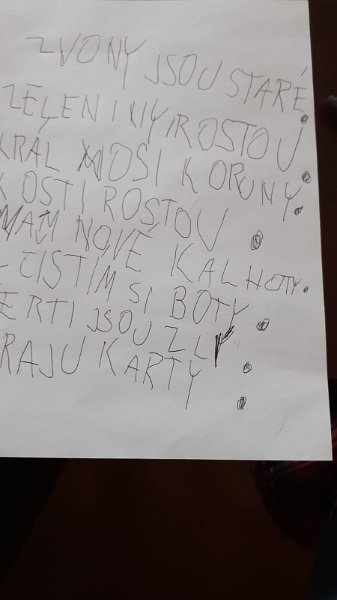 ZVONY JSOU STARÉ.
ZELENINY ROSTOU.
KRÁL NOSI KORUNY.
KOSTI ROSTOU.
MÁM NOVÉ KALHOTY.
ČISTIM SI BOTY.
ERTI JSOU ZLY.
RAJU KARTY.